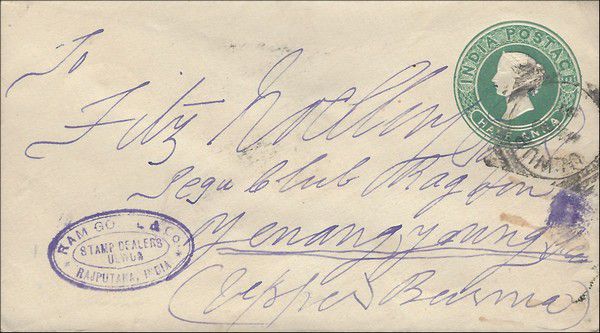 INDIA POSTAGE
HALF ANNA
To
Fitz
Pegu Club
Yenangyoung
(Upper Burma)
RAM GO L & CO.
STAMP DEALERS
RAJPUTANA, INDIA